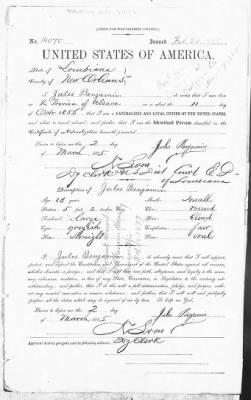 [FORM FOR NATURALIZED CITIZEN.]
No. 14075 Issued Feb
UNITED STATES OF AMERICA.
State of Louisiana
County of New Orleans
I, Jules Benjamin, do swear that I was born
in on the 11 day
of Oct 1856; that I am a NATURALIZED AND LOYAL CITIZEN OF THE UNITED STATES,
and about to travel abroad; and further, that I am the Identical Person described in the
Certificate of Naturalization herewith presented.
Sworn to before me this 2 day
of March 1885 Jules Benjamin
Dy Clerk U S Dist Court E. D.
of Louisiana
Description of Jules Benjamin
Age: Mouth: Small
Stature: 5 feet 2 inches Chin: round
Forehead: large Hair: black
Eyes: grayish Complexion: fair
Nose: straight Face: oval
I, Jules Benjamin, do solemnly swear that I will support,
protect and defend the Constitution and Government of the United States against all enemies,
whether domestic or foreign; and that I will bear true faith, allegiance, and loyalty to the same,
any ordinance, resolution, or law of any State, Convention, or Legislature to the contrary
notwithstanding; and further, that I do this with a full determination, pledge, and purpose, without
any mental reservation or evasion whatsoever; and further, that I will well and faithfully
perform all the duties which may be required of me by law. So help me God.
Sworn to before me this 2 day
of March 1885 Jules Benjamin
Dy Clerk